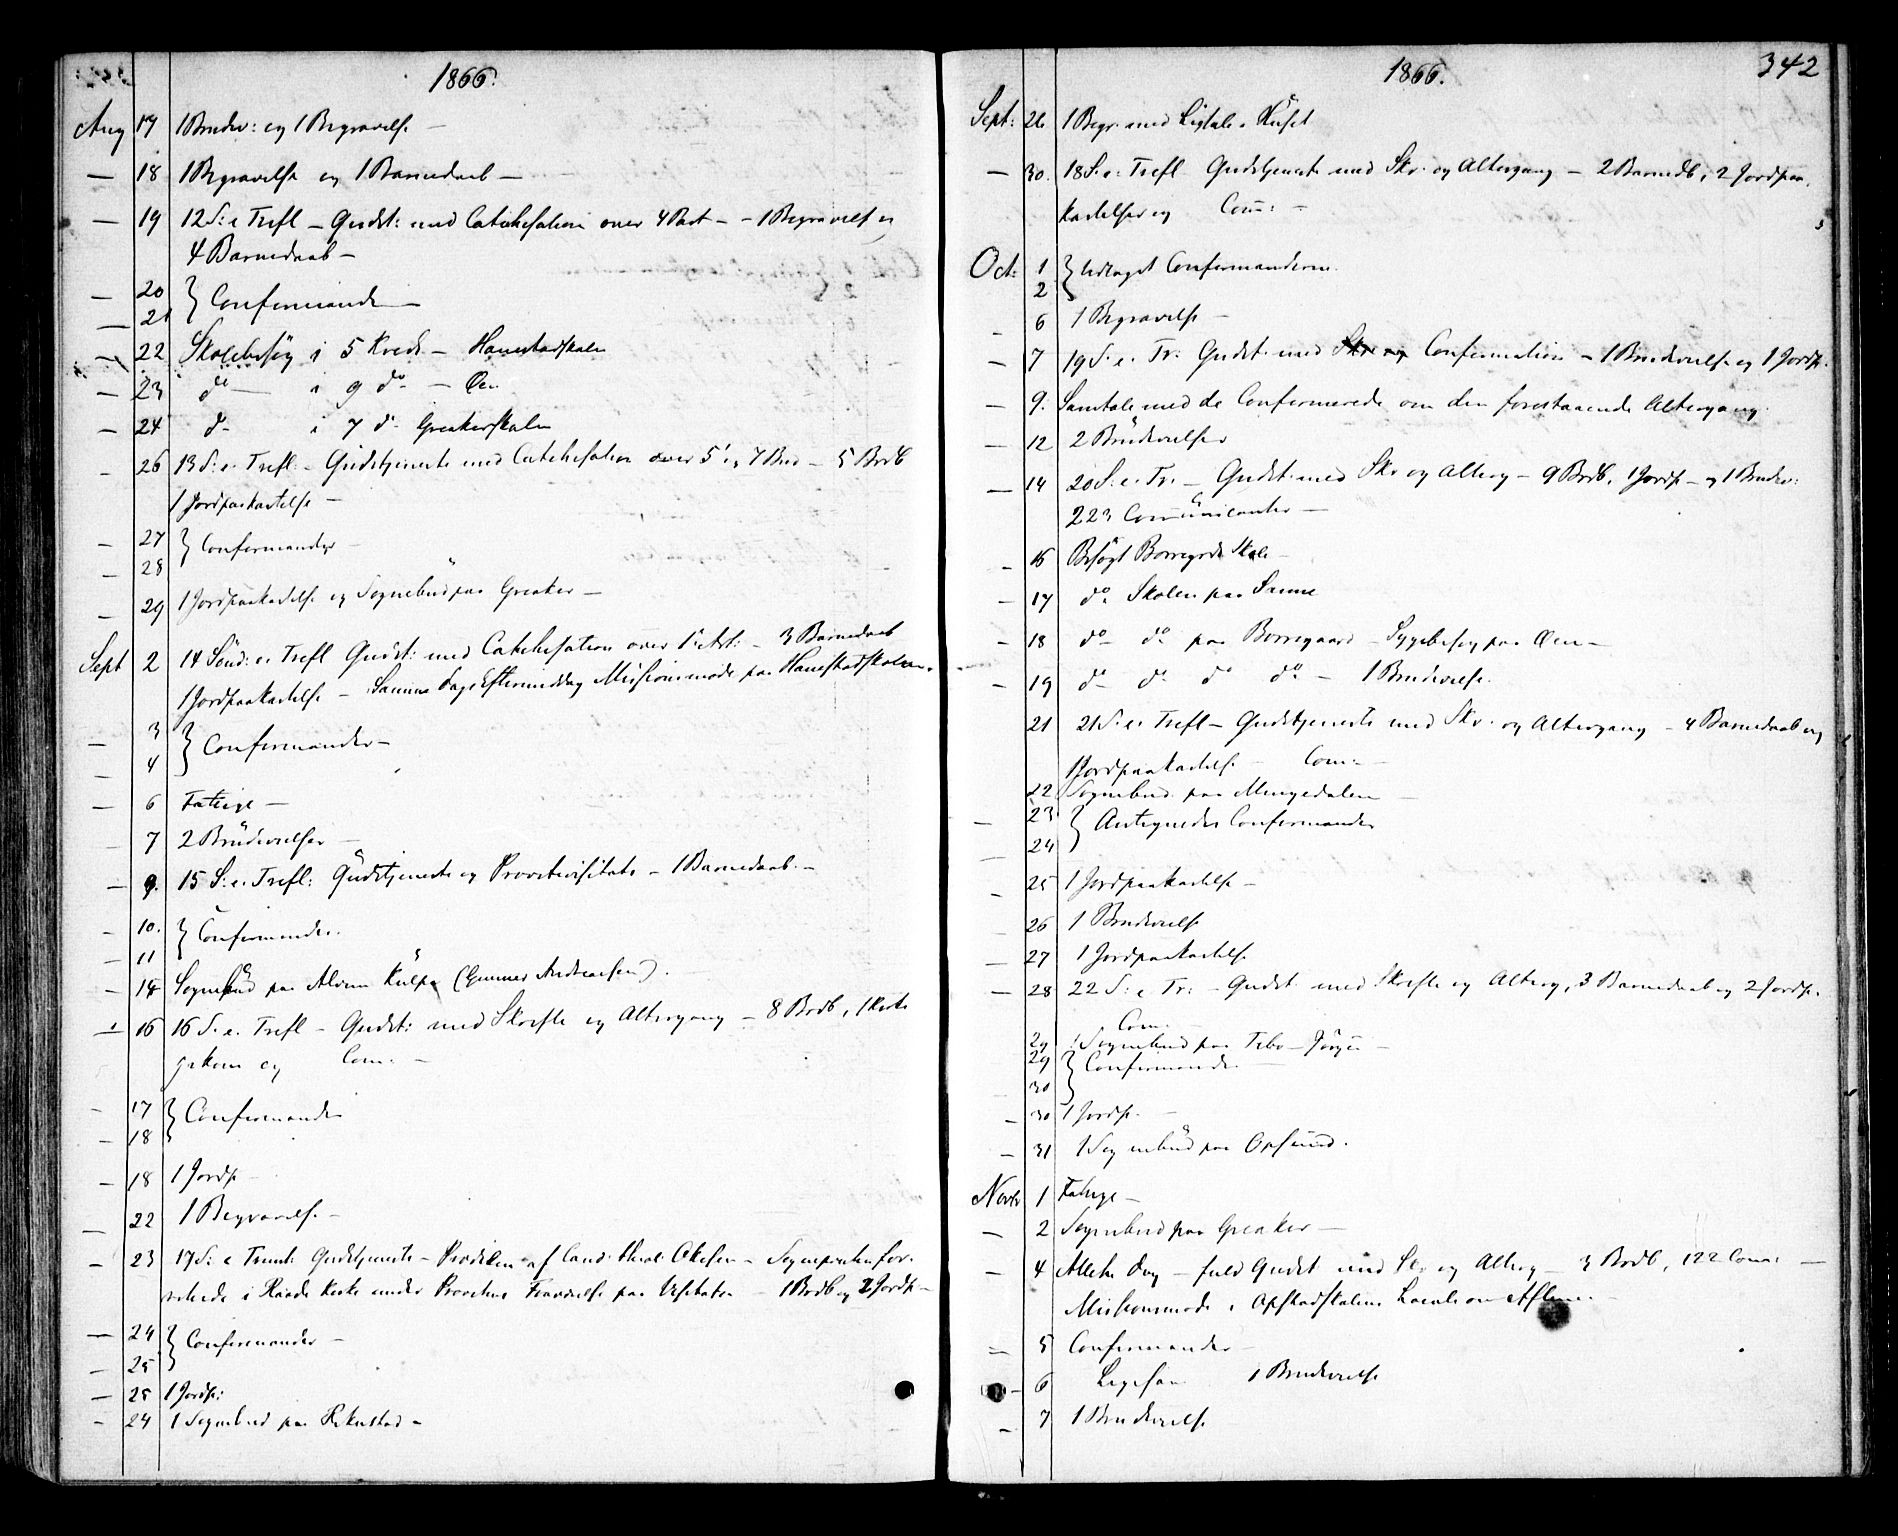 1866.
Aug 17 1 Brudev: og 1 Begravelse —
— 18 1 Begravelse og 1 Barnedaab —
— 19 12 S: e Trefl — Gudst: med Catechisation over 4 Part — 1 Begravelse og
4 Barnedaab —
— 20 } Confirmander —
— 21
— 22 Skolebesøg i 5 Kreds — Hannestadskolen
— 23 do — i 9 do — Øen
— 24 do i 7 do Greakerskolen
— 26 13 S: e. Trefl. — Gudstjeneste med Catechisation over 5 og 7 Bud — 5 Brdb
1 Jordpaakastelse —
— 27 } Confirmander —
— 28
— 29 1 Jordpaakastelse og Sognebud paa Greaker —
Sept 2 14 Sönd: e. Trefl Gudst: med Catechisation over 1 Art: — 3 Barnedaab
1 Jordpaakastelse — Samme Dags Eftermiddag Missionsmøde paa Hannestadskolen.
— 3 } Confirmander —
— 4
— 6 Fattige —
7 2 Brudevielser —
— 9. 15 S: e. Trefl: Gudstjeneste og Provstevisitats — 1 Barnedaab. —
— 10. } Confirmander.
— 11
— 14 Sognebud paa Alvim (Gunner Andreassen).
— 16 16 S. e. Trefl — Gudst: med Skrifte og Altergang — 8 Brdb, 1 Kirke
gekone og Com: —
— 17 } Confirmander
— 18
— 18 1 Jordp —
— 22 1 Begravelse —
— 23 17 S: e Trinit: Gudstjeneste — Prædiken af Cand. theol. — Sognepræsten for-
rettede i Raade Kirke under Provstens Fraværelse paa Visitats — 1 Brdb og 2 Jordp —
— 24 } Confirmander —
— 25
— 25 1 Jordp:
— 24 1 Sognebud paa —
1866.
342
Sept: 26 1 Begr. med Ligtale i Huset
— 30. 18 S. e. Trefl Gudstjeneste med Skr. og Altergang — 2 Barnedb, 2 Jordpaa.
kastelser og Com: —
Oct: 1 } Udtaget Confirmanderne.
2
— 6 1 Begravelse —
— 7 19 S. e. Tr: Gudst. med Skr. og Confirmation — 1 Brudevielse og 1 Jordp.
— 9. Samtale med de Confirmerede om den forestaaende Altergang.
— 12 2 Brudevielser
— 14 20 S. e. Tr. — Gudst. med Skr og Alterg — 9 Brdb, 1 Jordp — og 1 Brudev:
223 Communicanter —
— 16 Besögt Borregards Skole —
— 17 do Skolen paa Sanne
— 18 do do paa Borregaard — Sygebesøg paa Øen —
— 19 do do do do — 1 Brudevielse.
21 21 S. e. Trefl — Gudstjeneste med Skr. og Altergang — 4 Barnedaab og
1 Jordpaakastelse — Com: —
22 Sognebud paa Mingedalen —
— 23 } Antegnedes Confirmander
— 24
— 25 1 Jordpaakastelse —
— 26 1 Brudevielse
— 27 1 Jordpaakastelse
— 28 22 S: e Tr: — Gudst. med Skrifte og Alterg, 3 Barnedaab og 2 Jordp.
Com: —
29 1 Sognebud paa —
29 } Confirmander —
30
— 30 1 Jordp. —
— 31 1 Sognebud paa Opsund.
Novbr 1 Fattige —
— 2 Sognebud paa Greaker —
— 4 Allehe. Dag — fuld Gudst med Skr og Alterg — 3 Brdb, 122 Com: —
Missionsmøde i Opstadskolens Locale om Aftenen. —
— 5 Confirmander —
— 6 1 Brudevielse
— 7 1 Brudevielse